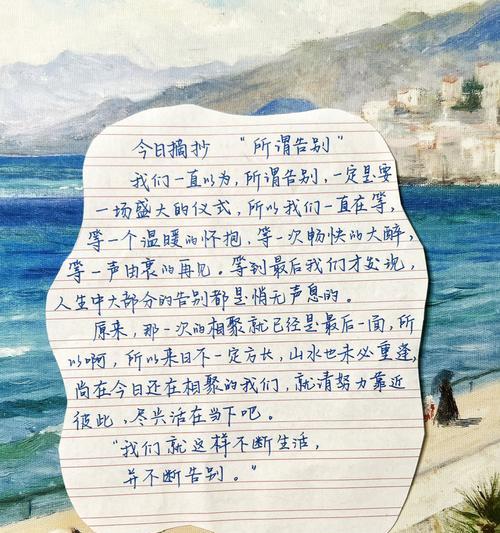 今日摘抄 “所谓告别”
我们一直以为，所谓告别，一定是要
一场盛大的仪式，所以我们一直在等，
等一个温暖的怀抱，等一次畅快的大醉，
等一声由衷的再见。等到最后我们才发现，
人生中大部分的告别都是悄无声息的。
原来，那一次的相聚就已经是最后一面，所
以啊，所以来日不一定方长，山水也未必重逢，
尚在今日还在相聚的我们，就请努力靠近
彼此，尽兴活在当下吧。
“我们就这样不断生活，
并不断告别。”